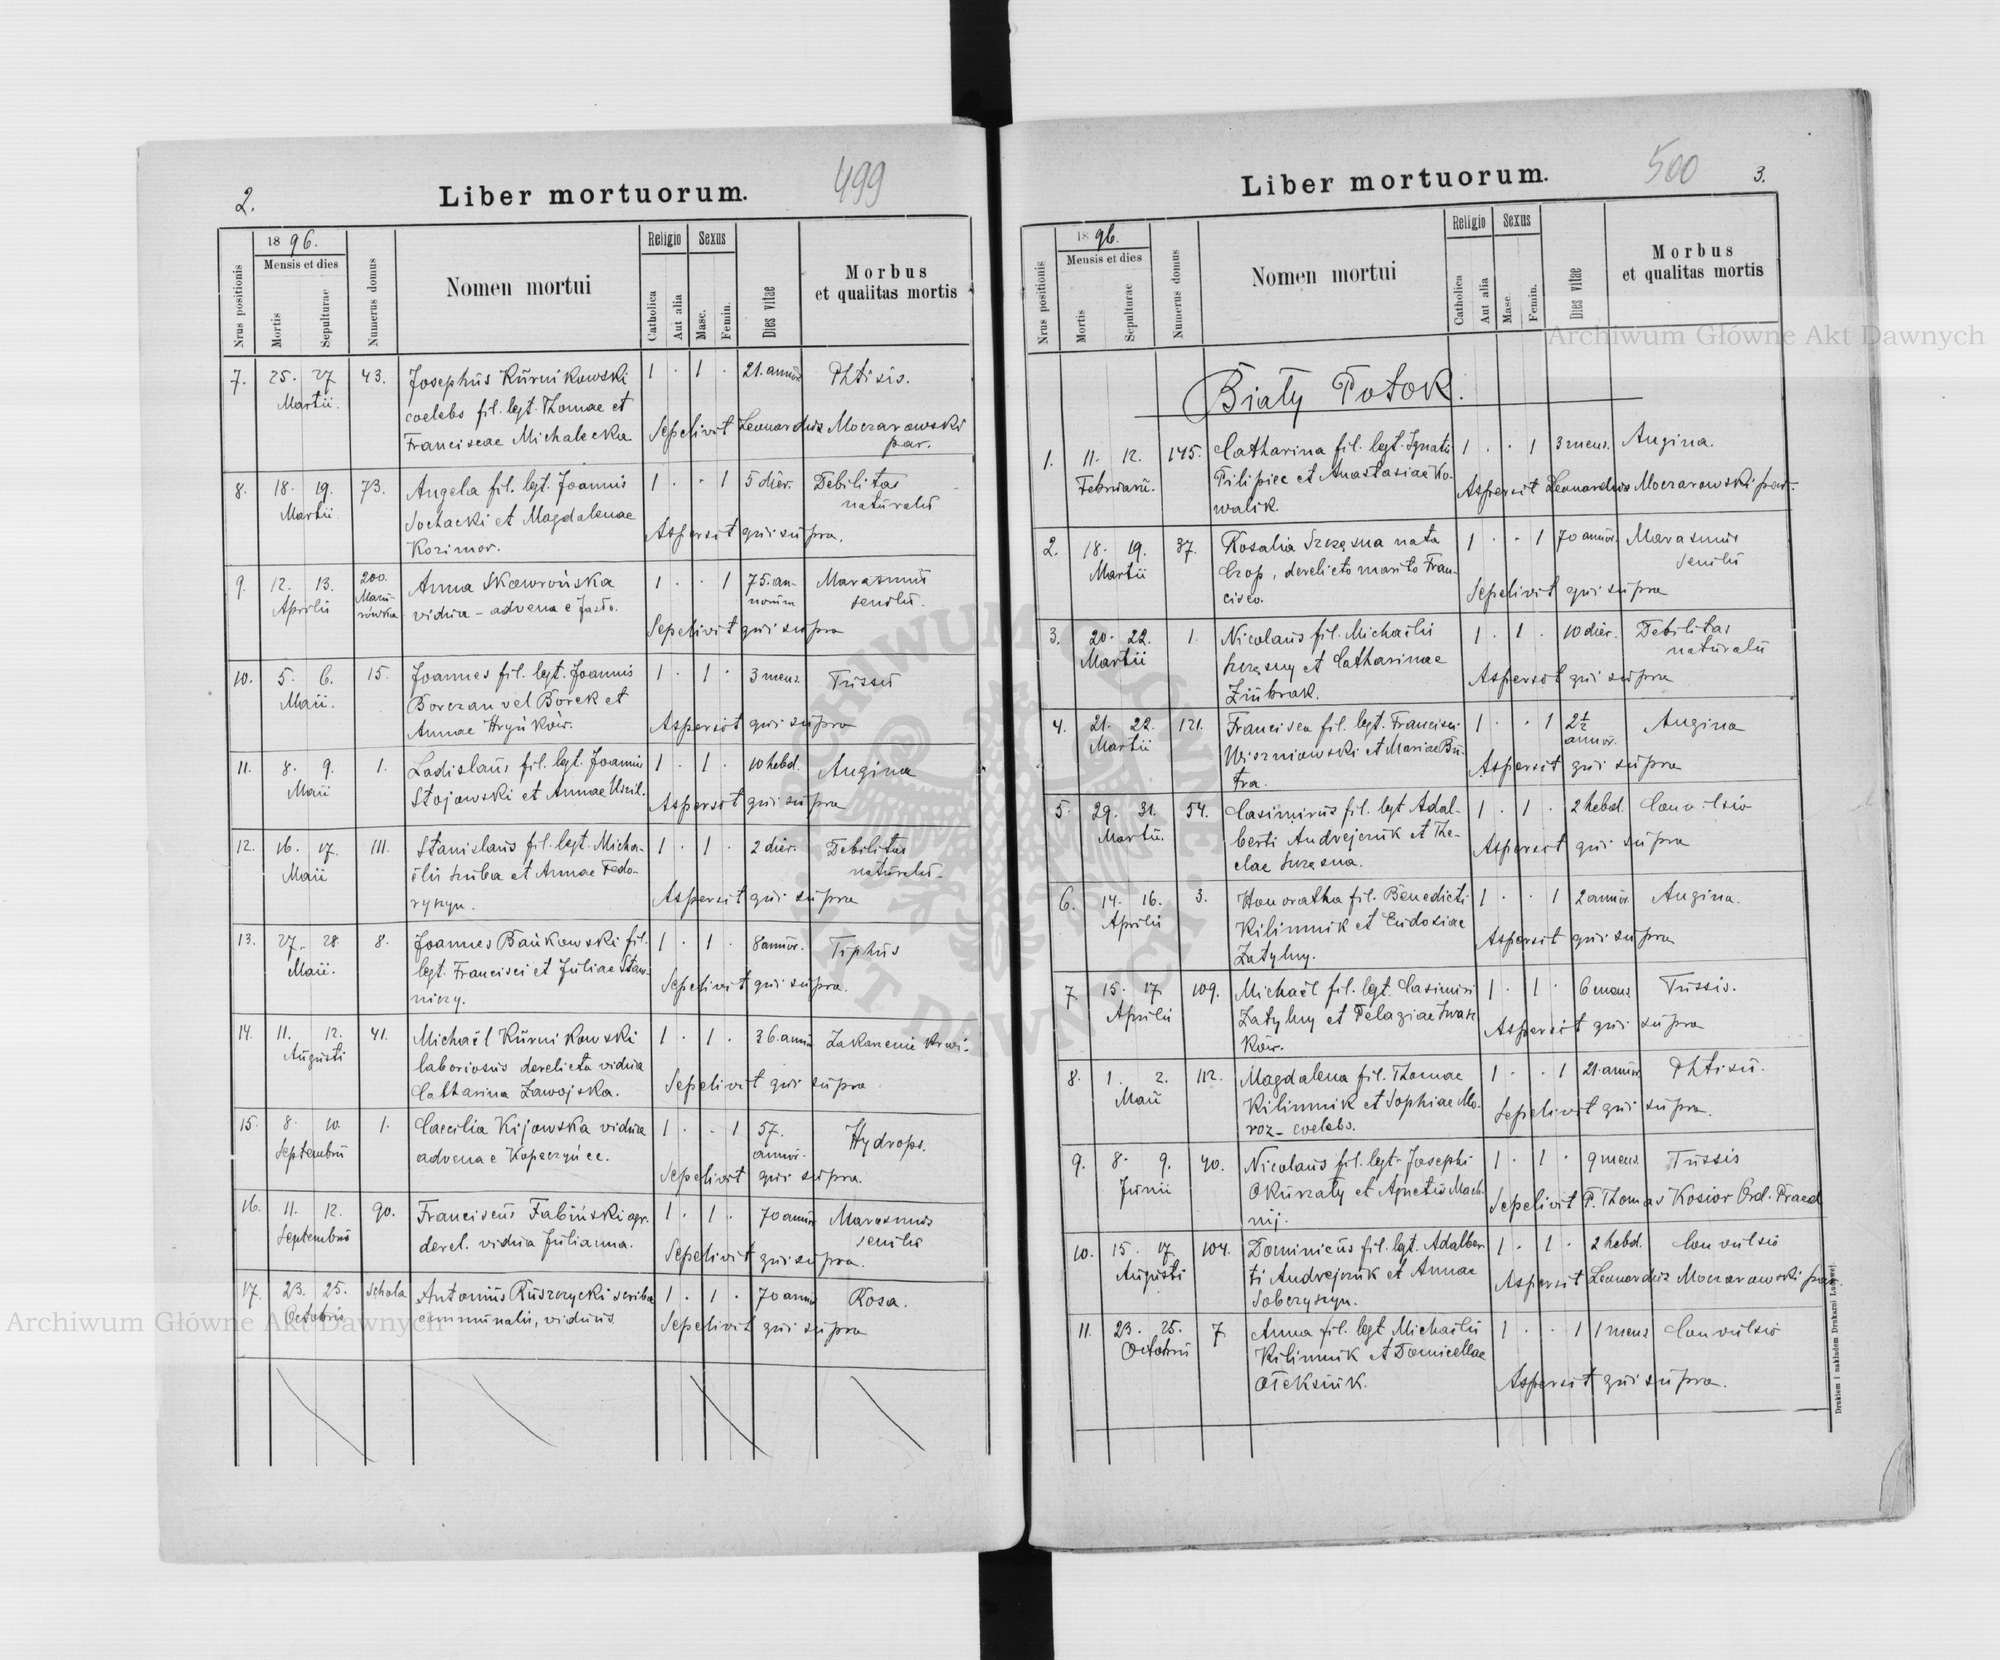 2.
Liber mortuorum.
499
Nrus positionis
1896.
Mensis et dies
Mortis
Sepulturae
Numerus domus
Nomen mortui
Religio
Catholica
Aut alia
Sexus
Masc.
Femin.
Dies vitae
Morbus
et qualitas mortis
7. 25. 27. 43. Josephus Kurnikowski 1 . 1 . 21. annor. Phtisis.
Martii. coelebs fil. legt. Thomae et
Franciscae Michalecka Sepelivit Leonardus Moczarowski
par.
8. 18. 19. 73. Angela fil. legt. Joannis 1 . . 1 5 dier. Debilitas
Martii Sochacki et Magdalenae naturalis
Kozimor. Aspersit qui supra.
9. 12. 13. 200. Anna Skowrońska 1 . . 1 75. an- Marasmus
Aprilis vidua - advena e Jasło. norum senilis.
Sepelivit qui supra
10. 5. 6. 15. Joannes fil. legt. Joannis 1 . 1 . 3 mens. Tussis
Maii. Borczan vel Borek et
Annae Hryńków. Aspersit qui supra
11. 8. 9. 1. Ladislaus fil. legt. Joannis 1 . 1 . 10 hebd. Angina
Maii Stojowski et Annae Aspersit qui supra
12. 16. 17. 111. Stanislaus fil. legt. Micha- 1 . 1 . 2 dier. Debilitas
Maii ëlis Szuba et Annae Fedo- naturalis.
ryszyn. Aspersit qui supra
13. 27. 28. 8. Joannes Bańkowski fil. 1 . 1 . 8 annor. Tiphus
Maii. legt. Francisci et Juliae Staw-
niczy. Sepelivit qui supra.
14. 11. 12. 41. Michaël Kurnikowski 1 . 1 . 36. annor. Zakażenie krwi.
Augusti laboriosus derelicta vidua
Catharina Zawojska. Sepelivit qui supra
15. 8. 10. 1. Caecilia Kijowska vidua 1 . . 1 57. Hydrops.
Septembris advena e Kopeczyńce. annor.
Sepelivit qui supra.
16. 11. 12. 90. Franciscus Fabiński agr. 1 . 1 . 70 annor. Marasmus
Septembris derel. vidua Julianna. senilis
Sepelivit qui supra.
17. 23. 25. Schola Antonius Ruszczycki scriba 1 . 1 . 70 annor. Rosa.
Octobris communalis, viduus. Sepelivit qui supra
Liber mortuorum.
500
3.
Nrus positionis
1896.
Mensis et dies
Mortis
Sepulturae
Numerus domus
Nomen mortui
Religio
Catholica
Aut alia
Sexus
Masc.
Femin.
Dies vitae
Morbus
et qualitas mortis
Biały Potok.
1. 11. 12. 145. Catharina fil. legt. Ignatii 1 . . 1 3 mens. Angina.
Februarii. Pilipiec et Anastasiae Ko-
walik. Aspersit Leonardus Moczarowski par.
2. 18. 19. 37. Rosalia Szczęsna nata 1 . . 1 70 annor. Marasmus
Martii Czop, derelicto marito Fran- senilis
cisco. Sepelivit qui supra
3. 20. 22. 1. Nicolaus fil. Michaëlis 1 . 1 . 10 dier. Debilitas
Martii Szczęsny et Catharinae naturalis
Ziubrak. Aspersit qui supra
4. 21. 22. 121. Francisca fil. legt. Francisci 1 . . 1 2 1/2 Angina
Martii Wiszniowski et Mariae Bu- annor.
tra. Aspersit qui supra
5. 29. 31. 54. Casimirus fil. legt Adal- 1 . 1 . 2 hebd. Convulsio
Martii. berti Andrejczuk et The-
clae Szczęsna. Aspersit qui supra
6. 14. 16. 3. Honoratha fil. Benedicti 1 . . 1 2 annor. Angina.
Aprilis Kilimnik et Eudosiae
Zatylny. Aspersit qui supra
7 15. 17. 109. Michaël fil. legt. Casimiri 1 . 1 . 6 mens. Tussis.
Aprilis Zatylny et Pelagiae Iwasz
ków. Aspersit qui supra
8. 1. 2. 112. Magdalena fil. Thomae 1 . . 1 21. annor. Phtisis.
Maii Kilimnik et Sophiae Mo-
roz - coelebs. Sepelivit qui supra.
9. 8. 9. 40. Nicolaus fil. legt. Josephi 1 . 1 . 9 mens. Tussis
Junii Okurzały et Agnetis Mach-
nij. Sepelivit P. Thomas Kosior Ord. Praed
10. 15. 17. 104. Dominicus fil. legt. Adalber- 1 . 1 . 2 hebd. Convulsio
Augusti ti Andrejczuk et Annae
Sobczyszyn. Aspersit Leonardus Moczarowski par.
11. 23. 25. 7. Anna fil. legt Michaëlis 1 . . 1 1 mens Convulsio
Octobris Kilimnik et Domicellae
Ołeksiuk. Aspersit qui supra.
Drukiem i nakładem Drukarni Ludowej.
Archiwum Główne Akt Dawnych
Archiwum Główne Akt Dawnych
ARCHIWUM GŁÓWNE AKT DAWNYCH